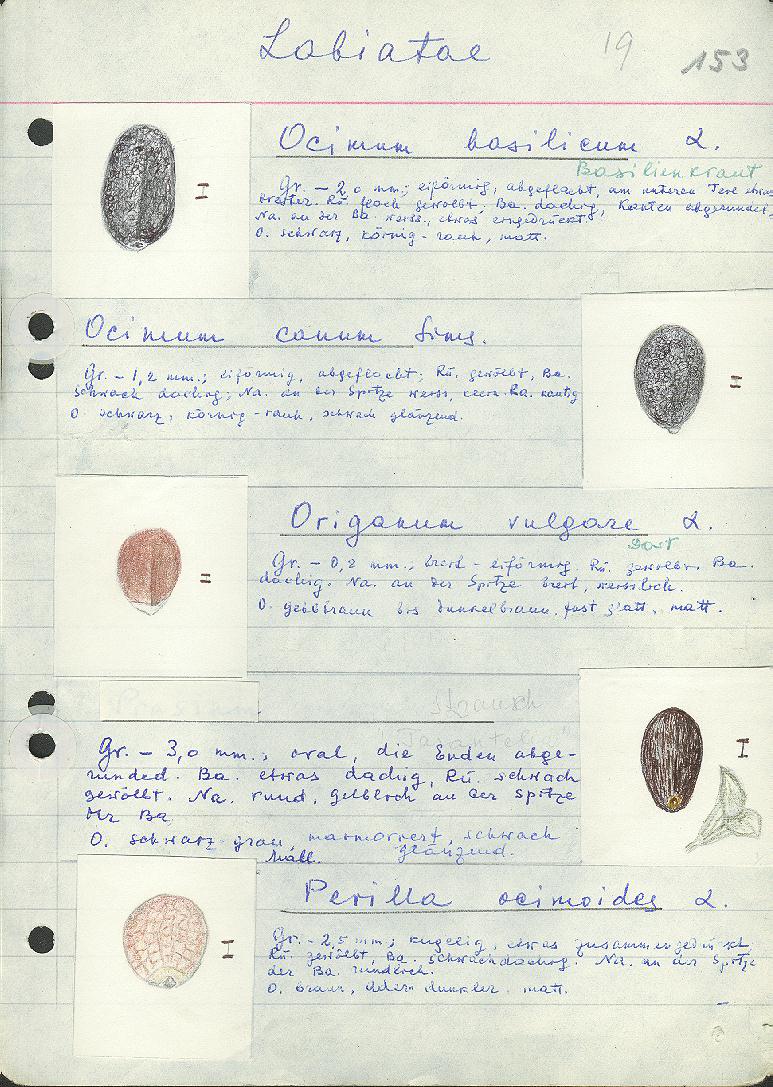 Labiatae 19 153
Ocimum basilicum L.
Basilienkraut
Gr. – 2,0 mm.; eiförmig, abgeflacht, am unteren Teil etwas
breiter. Rü. flach gewölbt, Ba. dachig, Kanten abgerundet,
Na. an der Ba. weiss, etwas eingedrückt.
O. schwarz, körnig-rauh, matt.
Ocimum canum Sims.
Gr. – 1,2 mm.; eiförmig, abgeflacht; Rü. gewölbt, Ba.
schwach dachig; Na. an der Spitze weiss, Ba. kantig
O. schwarz, körnig-rauh, schwach glänzend.
Origanum vulgare L.
Dost
Gr. – 0,2 mm., breit-eiförmig. Rü. gewölbt. Ba.
dachig. Na. an der Spitze breit, weisslich.
O. gelbbraun bis dunkelbraun, fast glatt, matt.
Prasium strauch
Gr. – 3,0 mm., oval, die Enden abge-
runded. Ba. etwas dachig, Rü. schwach
gewölbt. Na. rund, gelblich an der Spitze
der Ba
O. schwarz-grau, marmoriert, schwach
matt. glänzend.
Perilla ocimoides L.
Gr. – 2,5 mm; kugelig, etwas zusammengedrückt,
Rü. gewölbt, Ba. schwachdachig. Na. an der Spitze
der Ba. rundlich.
O. braun, dunkler. matt.